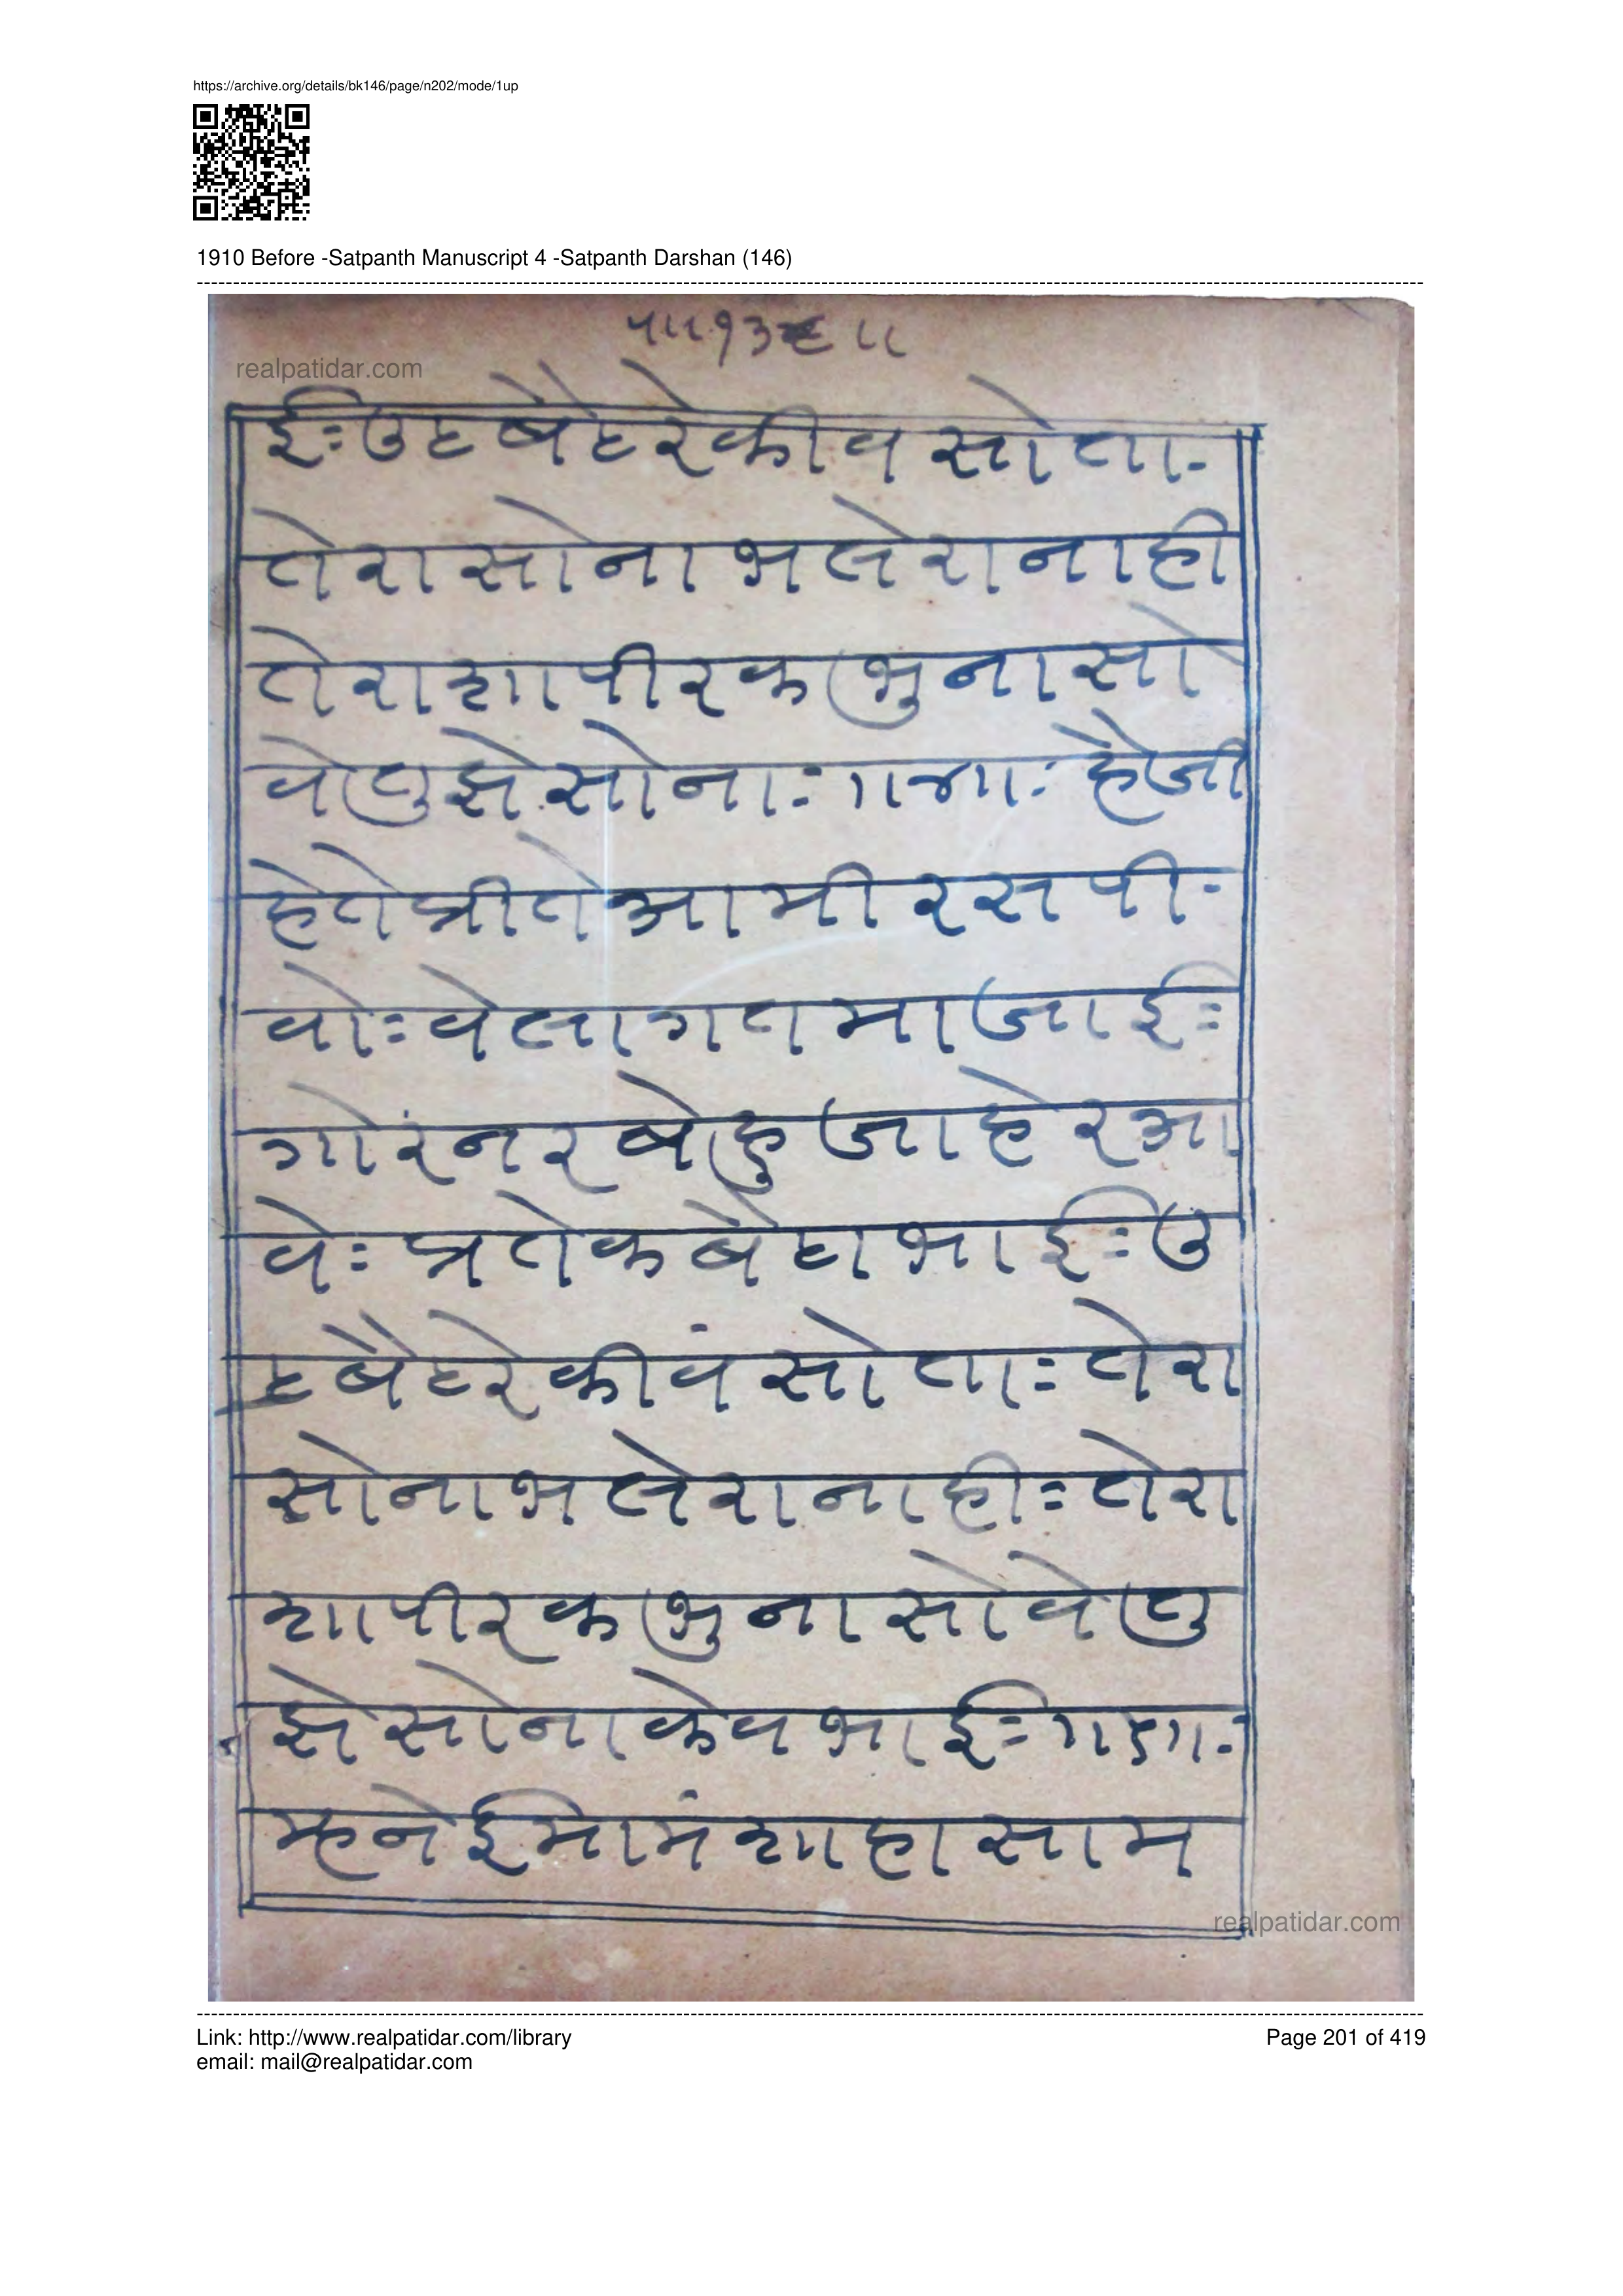 https://archive.org/details/bk146/page/n202/mode/1up
1910 Before -Satpanth Manuscript 4 -Satpanth Darshan (146)
realpatidar.com
ईःउठबैठरेकीवसोता-
तेरासोनाभलेरानाही
तेराशापीरकभुनासो
वेतुझेसोनाः ॥४॥ः हैजी
हेतेप्रीतेआमीरसपी-
वोःवेलागतमाजाईः
गोरंनरबोहुजाहेरआ
वेःप्रतेकबैठाभाईःउ
ठबैठरेकीवंसोताःतेरा
सोनाभलेरानाहीःतेरा
शापीरकभुनासोवेतु
झेसोनाकेवभाईः॥५॥ः
म्हनेईमामंशाहासाम
realpatidar.com
Link: http://www.realpatidar.com/library
Page 201 of 419
email: mail@realpatidar.com